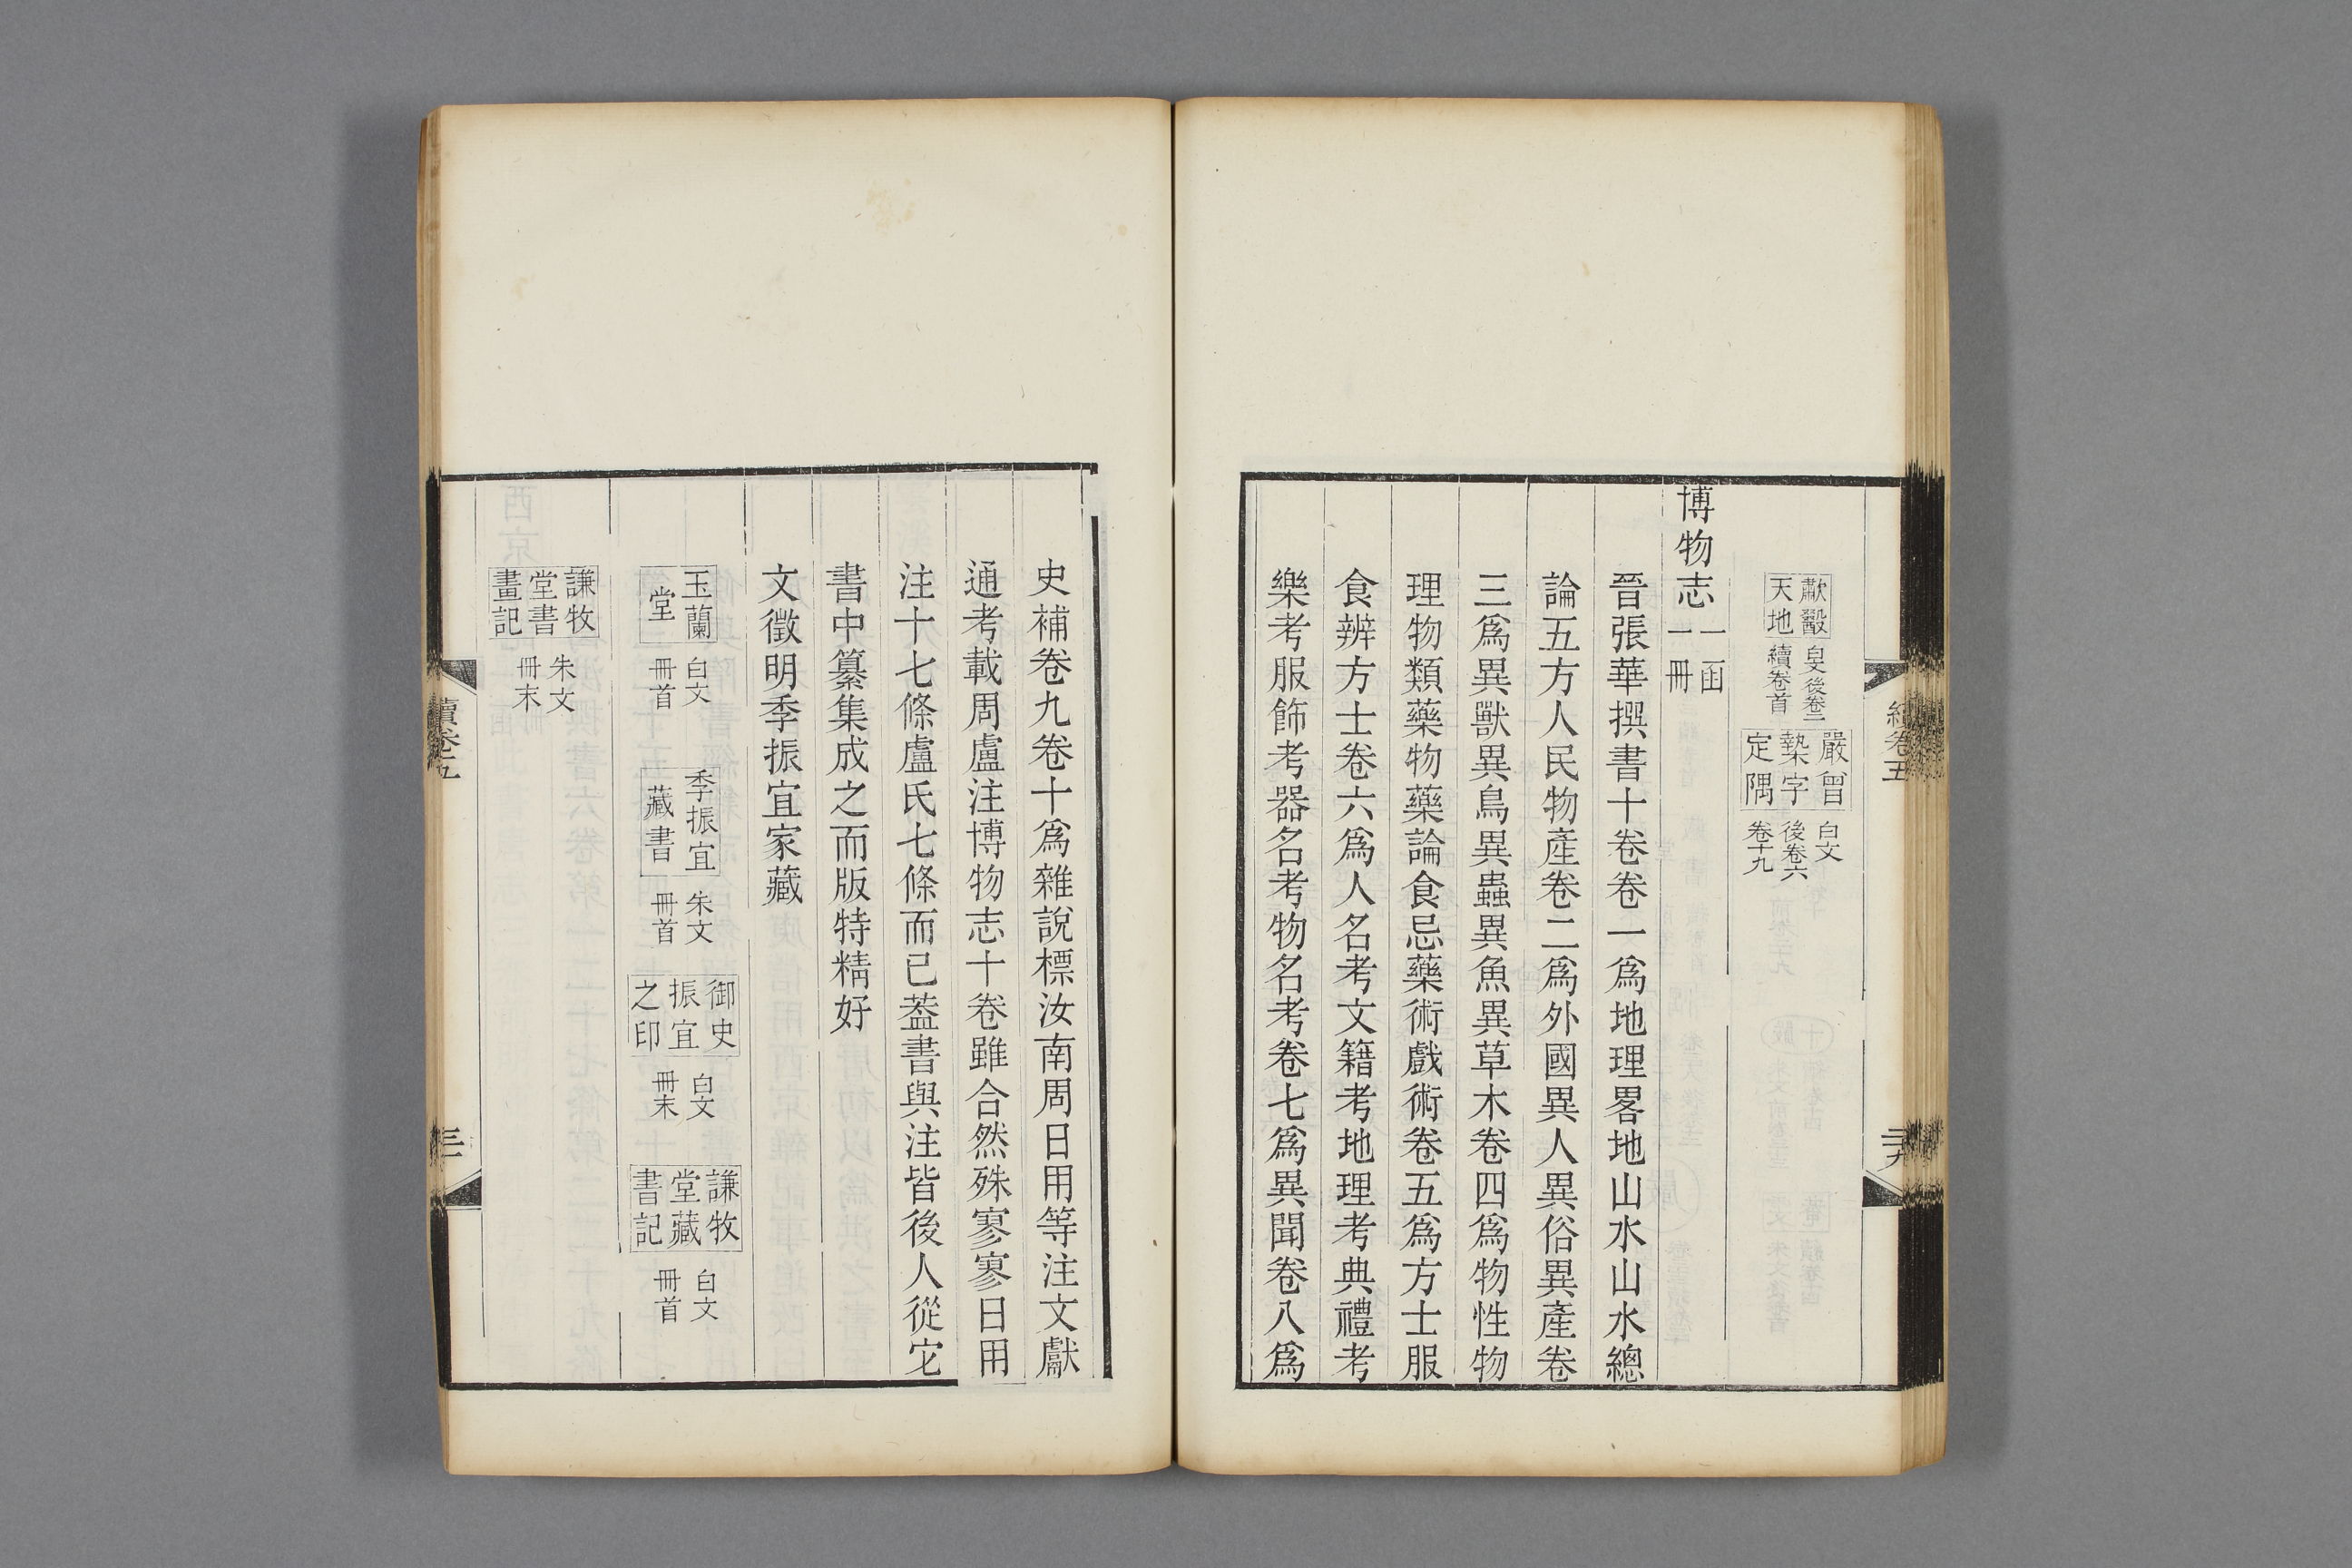 天地
白文後卷二
續卷首
嚴曾
墊字
定隅
白文
後卷六
卷十九
博物志
一函
一冊
晉張華撰書十卷卷一爲地理畧地山水山水總
論五方人民物產卷二爲外國異人異俗異產卷
三爲異獸異鳥異蟲異魚異草木卷四爲物性物
理物類藥物藥論食忌藥術戲術卷五爲方士服
食辨方士卷六爲人名考文籍考地理考典禮考
樂考服飾考器名考物名考卷七爲異聞卷八爲
史補卷九卷十爲雜說標汝南周日用等注文獻
通考載周盧注博物志十卷雖合然殊寥寥日用
注十七條盧氏七條而已葢書與注皆後人從它
書中纂集成之而版特精好
文徵明季振宜家藏
玉蘭
堂
白文
冊首
季振宜
藏書
朱文
冊首
御史
振宜
之印
白文
冊末
謙牧
堂藏
書記
白文
冊首
謙牧
堂書
畫記
朱文
冊末
續卷五